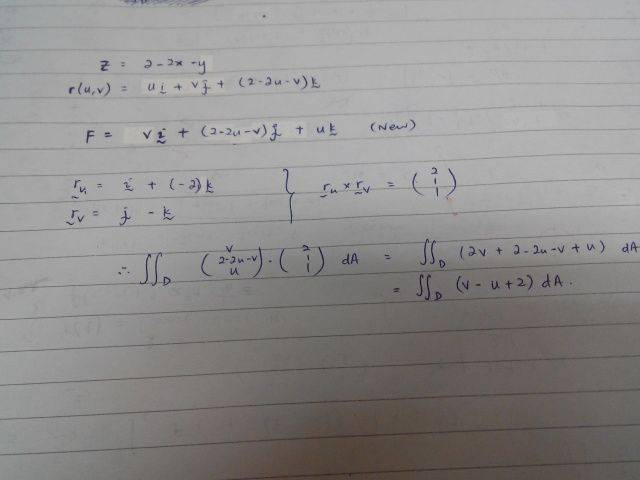 z = 2-2x-y
r(u,v) = ui + vj + (2-2u-v)k
F = vi + (2-2u-v)j + uk (New)
ru = i + (-2)k } ru × rv = (2 1 1)
rv = j - k
∴ ∬D (v 2-2u-v u) · (2 1 1) dA = ∬D (2v + 2-2u-v+u) dA
= ∬D (v-u+2) dA.